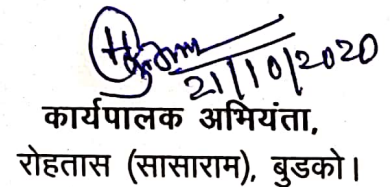 21/10/2020
कार्यपालक अभियंता,
रोहतास (सासाराम), बुडको।